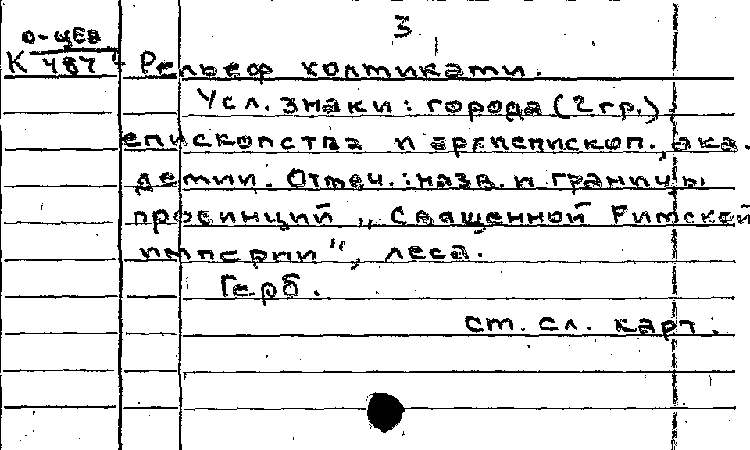 3
О-ЦЕВ
К 487
Рельеф холмиками.
Усл. знаки: города (2 гр.)
епископства и архиепископ., ака.
демии. Отмеч.: назв. и границы
провинций „Священной Римской
империи", леса.
Герб.
см. сл. карт.